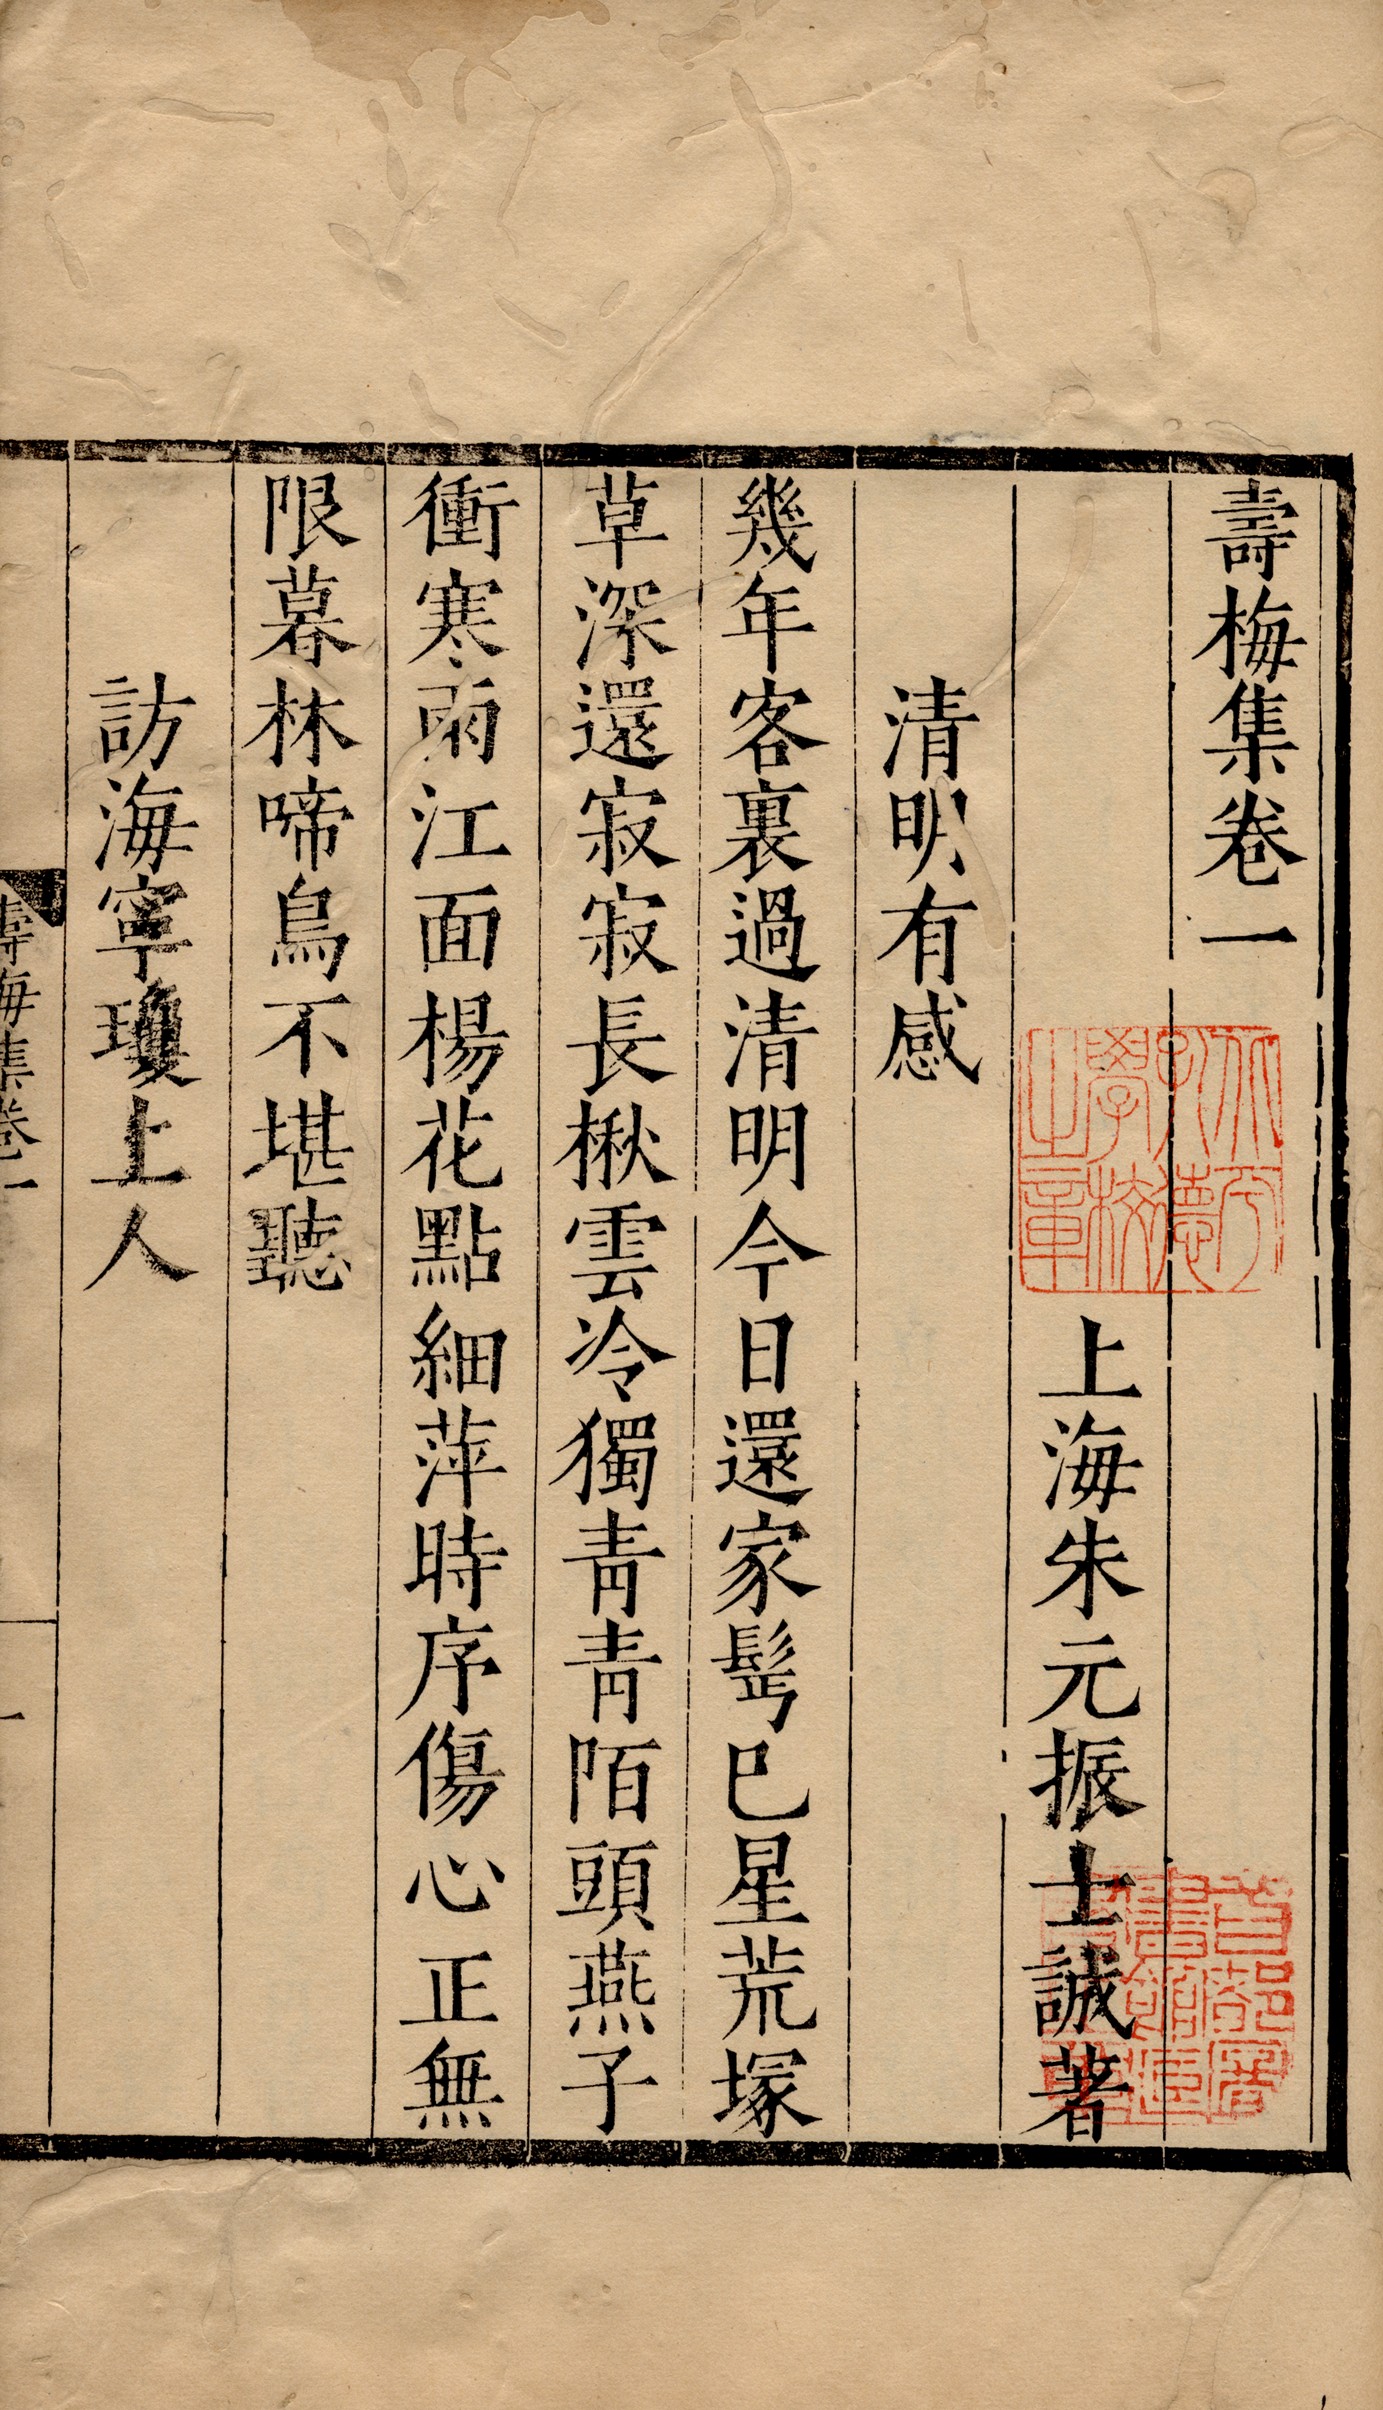 壽梅集卷一
北平孔德學校之章
上海朱元振士誠著
清明有感
幾年客裏過清明今日還家髩巳星荒塚
草深還寂寂長楸雲冷獨靑靑陌頭燕子
衝寒雨江面楊花點細萍時序傷心正無
限暮林啼鳥不堪聽
訪海寧瓊上人
壽梅集卷一
一